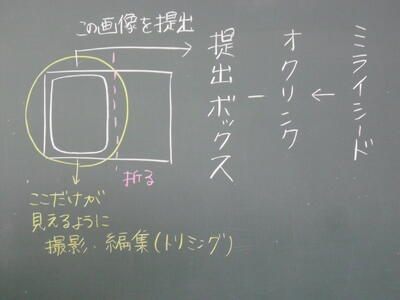 ミライシード
← オクリンク
ー 提出ボックス
この画像を提出
折る
ここだけが
見えるように
撮影・編集(トリミング)